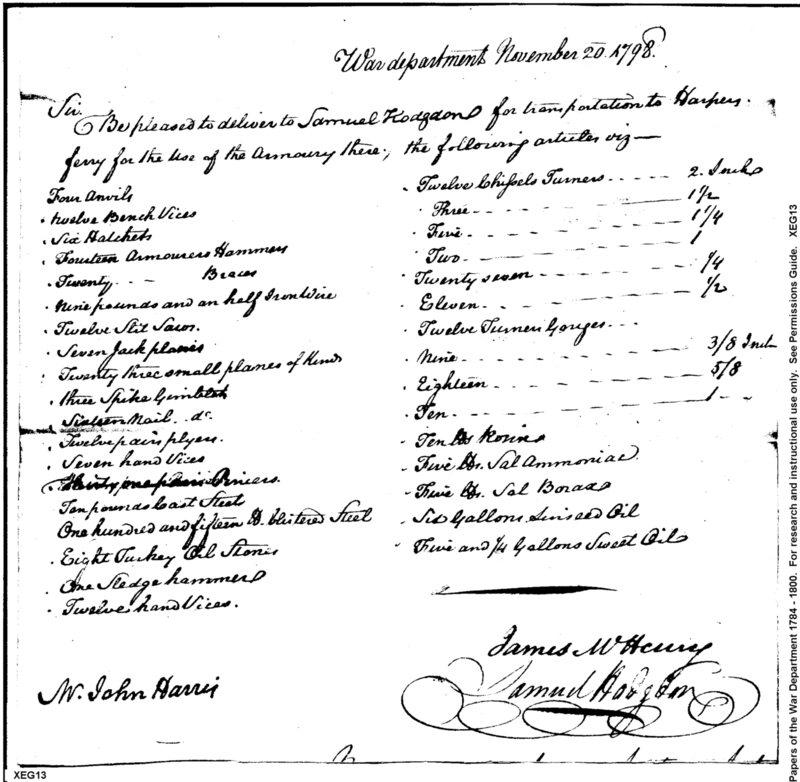 War department November 20. 1798.
Sir.
Be pleased to deliver to Samuel Hodgdon for transportation to Harpers.
ferry for the Use of the Armoury there; the following articles viz—
Four Anvils
twelve Bench Vices
Six Hatchets
Fourteen Armourers Hammers
Twenty - - - Braces
Nine pounds and an half Iron Wire
Twelve Slit Saws.
Seven Jack planes
Twenty three small planes of Kinds
three Spike Gimblets
Sixteen Nail.. do.
Twelve pairs plyers.
Seven hand Vices
Thirty one pairs Pincers.
Ten pounds Cast Steel
One hundred and fifteen lb. blistered Steel
Eight Turkey Oil Stones
One Sledge hammer
Twelve hand Vices.
Twelve Chissels Turners - - - - - 2. Inch
Three - - - - - 1 1/2
Five - - - - - 1 1/4
Two - - - - - 1
Twenty seven - - - - - 1/4
Eleven - - - - - 1/2
Twelve Turners Gouges - - -
Nine - - - - - 3/8 Inch
Eighteen - - - - - 5/8
Ten - - - - - 1 - -
Ten lbs Rosin
Five lbs. Sal Ammoniac
Five lbs. Sal Borax
Six Gallons Linseed Oil
Five and 1/4 Gallons Sweet Oil
James McHenry
Samuel Hodgdon
Mr. John Harris
XEG13
Papers of the War Department 1784 - 1800. For research and instructional use only. See Permissions Guide. XEG13